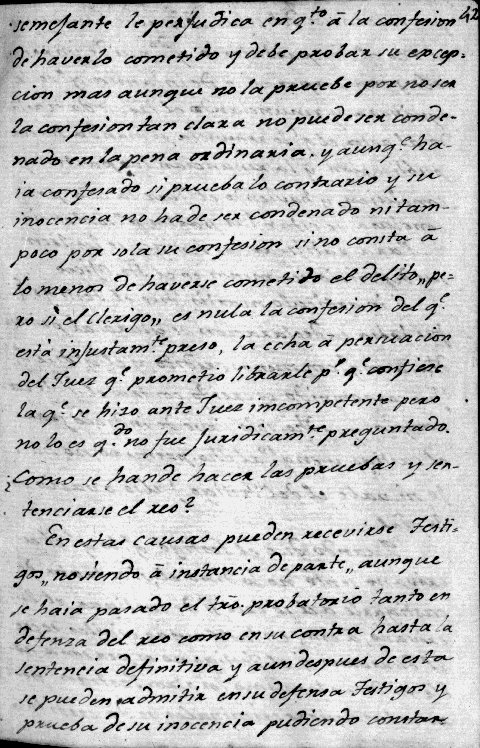 42
semejante le perjudica en q.to â la confesion
de haverlo cometido y debe probar su excep-
cion mas aunque no la pruebe por no ser
la confesion tan clara no puede ser conde-
nado en la pena ordinaria. y aunq.e ha-
ia confesado si prueba lo contrario y su
inocencia no ha de ser condenado ni tam-
poco por sola su confesion si no consta â
lo menos de haverse cometido el delito,, pe-
ro si el Clerigo,, es nula la confesion del q.e
està injustam.te preso, la echa a persuacion
del Juez q.e prometio librarle p.r q.e confiese
la q.e se hizo ante Juez imcompetente pero
no lo es q.do no fue juridicam.te preguntado.
¿Como se han de hacer las pruebas y sen-
tenciarse el reo?
En estas causas pueden recevirse Testi-
gos,, no siendo â instancia de parte,, aunque
se haia pasado el tr̃o. probatorio tanto en
defenza del reo como en su contra hasta la
sentencia definitiva y aun despues de esta
se pueden admitir en su defensa Testigos y
prueba de su inocencia pudiendo constar